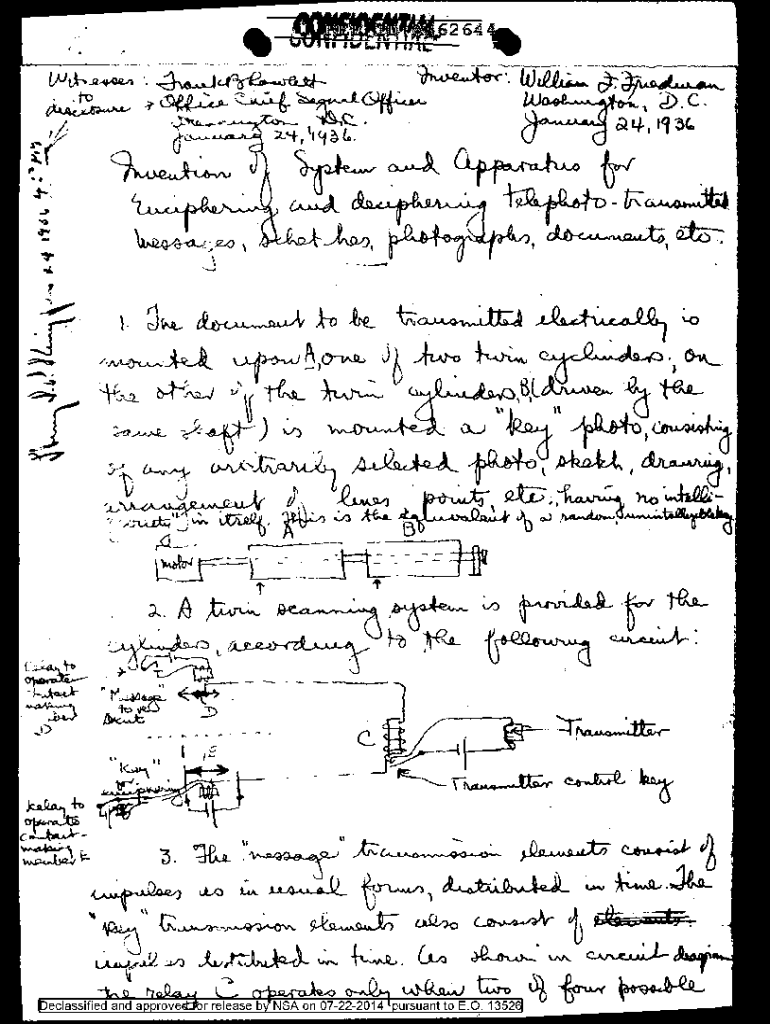 CONFIDENTIAL
62644
Witnesses: Frank B Rowlett
to disclosure
Office Chief Signal Officer
Washington D.C.
January 24, 1936.
Inventor: William F. Friedman
Washington, D.C.
January 24, 1936
Invention of System and Apparatus for
Enciphering and deciphering telephoto-transmitted
messages, sketches, photographs, documents, etc.
1. The document to be transmitted electrically is
mounted upon A, one of two twin cyclinders; on
the other of the twin cylinders, B, (driven by the
same shaft) is mounted a "key" photo, consisting
of any arbitrarily selected photo, sketch, drawing,
arrangement of lines points, etc., having no intelli-
in itself. This is the equivalent of a random, unintelligible key
A
B
motor
2. A twin scanning system is provided for the
cylinders, according to the following circuit:
Relay to
operate
contact
making
D
"Message"
to be
D
C
Transmitter
Transmitter control key
"Key"
for
enciphering
E
Relay to
operate
contact-
making
member E
3. The "message" transmission elements consist of
impulses as in usual forms, distributed in time. The
"key" transmission elements also consist of elements
impulses distributed in time. As shown in circuit diagram
the relay C operates only when two of four possible
Declassified and approved for release by NSA on 07-22-2014 pursuant to E.O. 13526